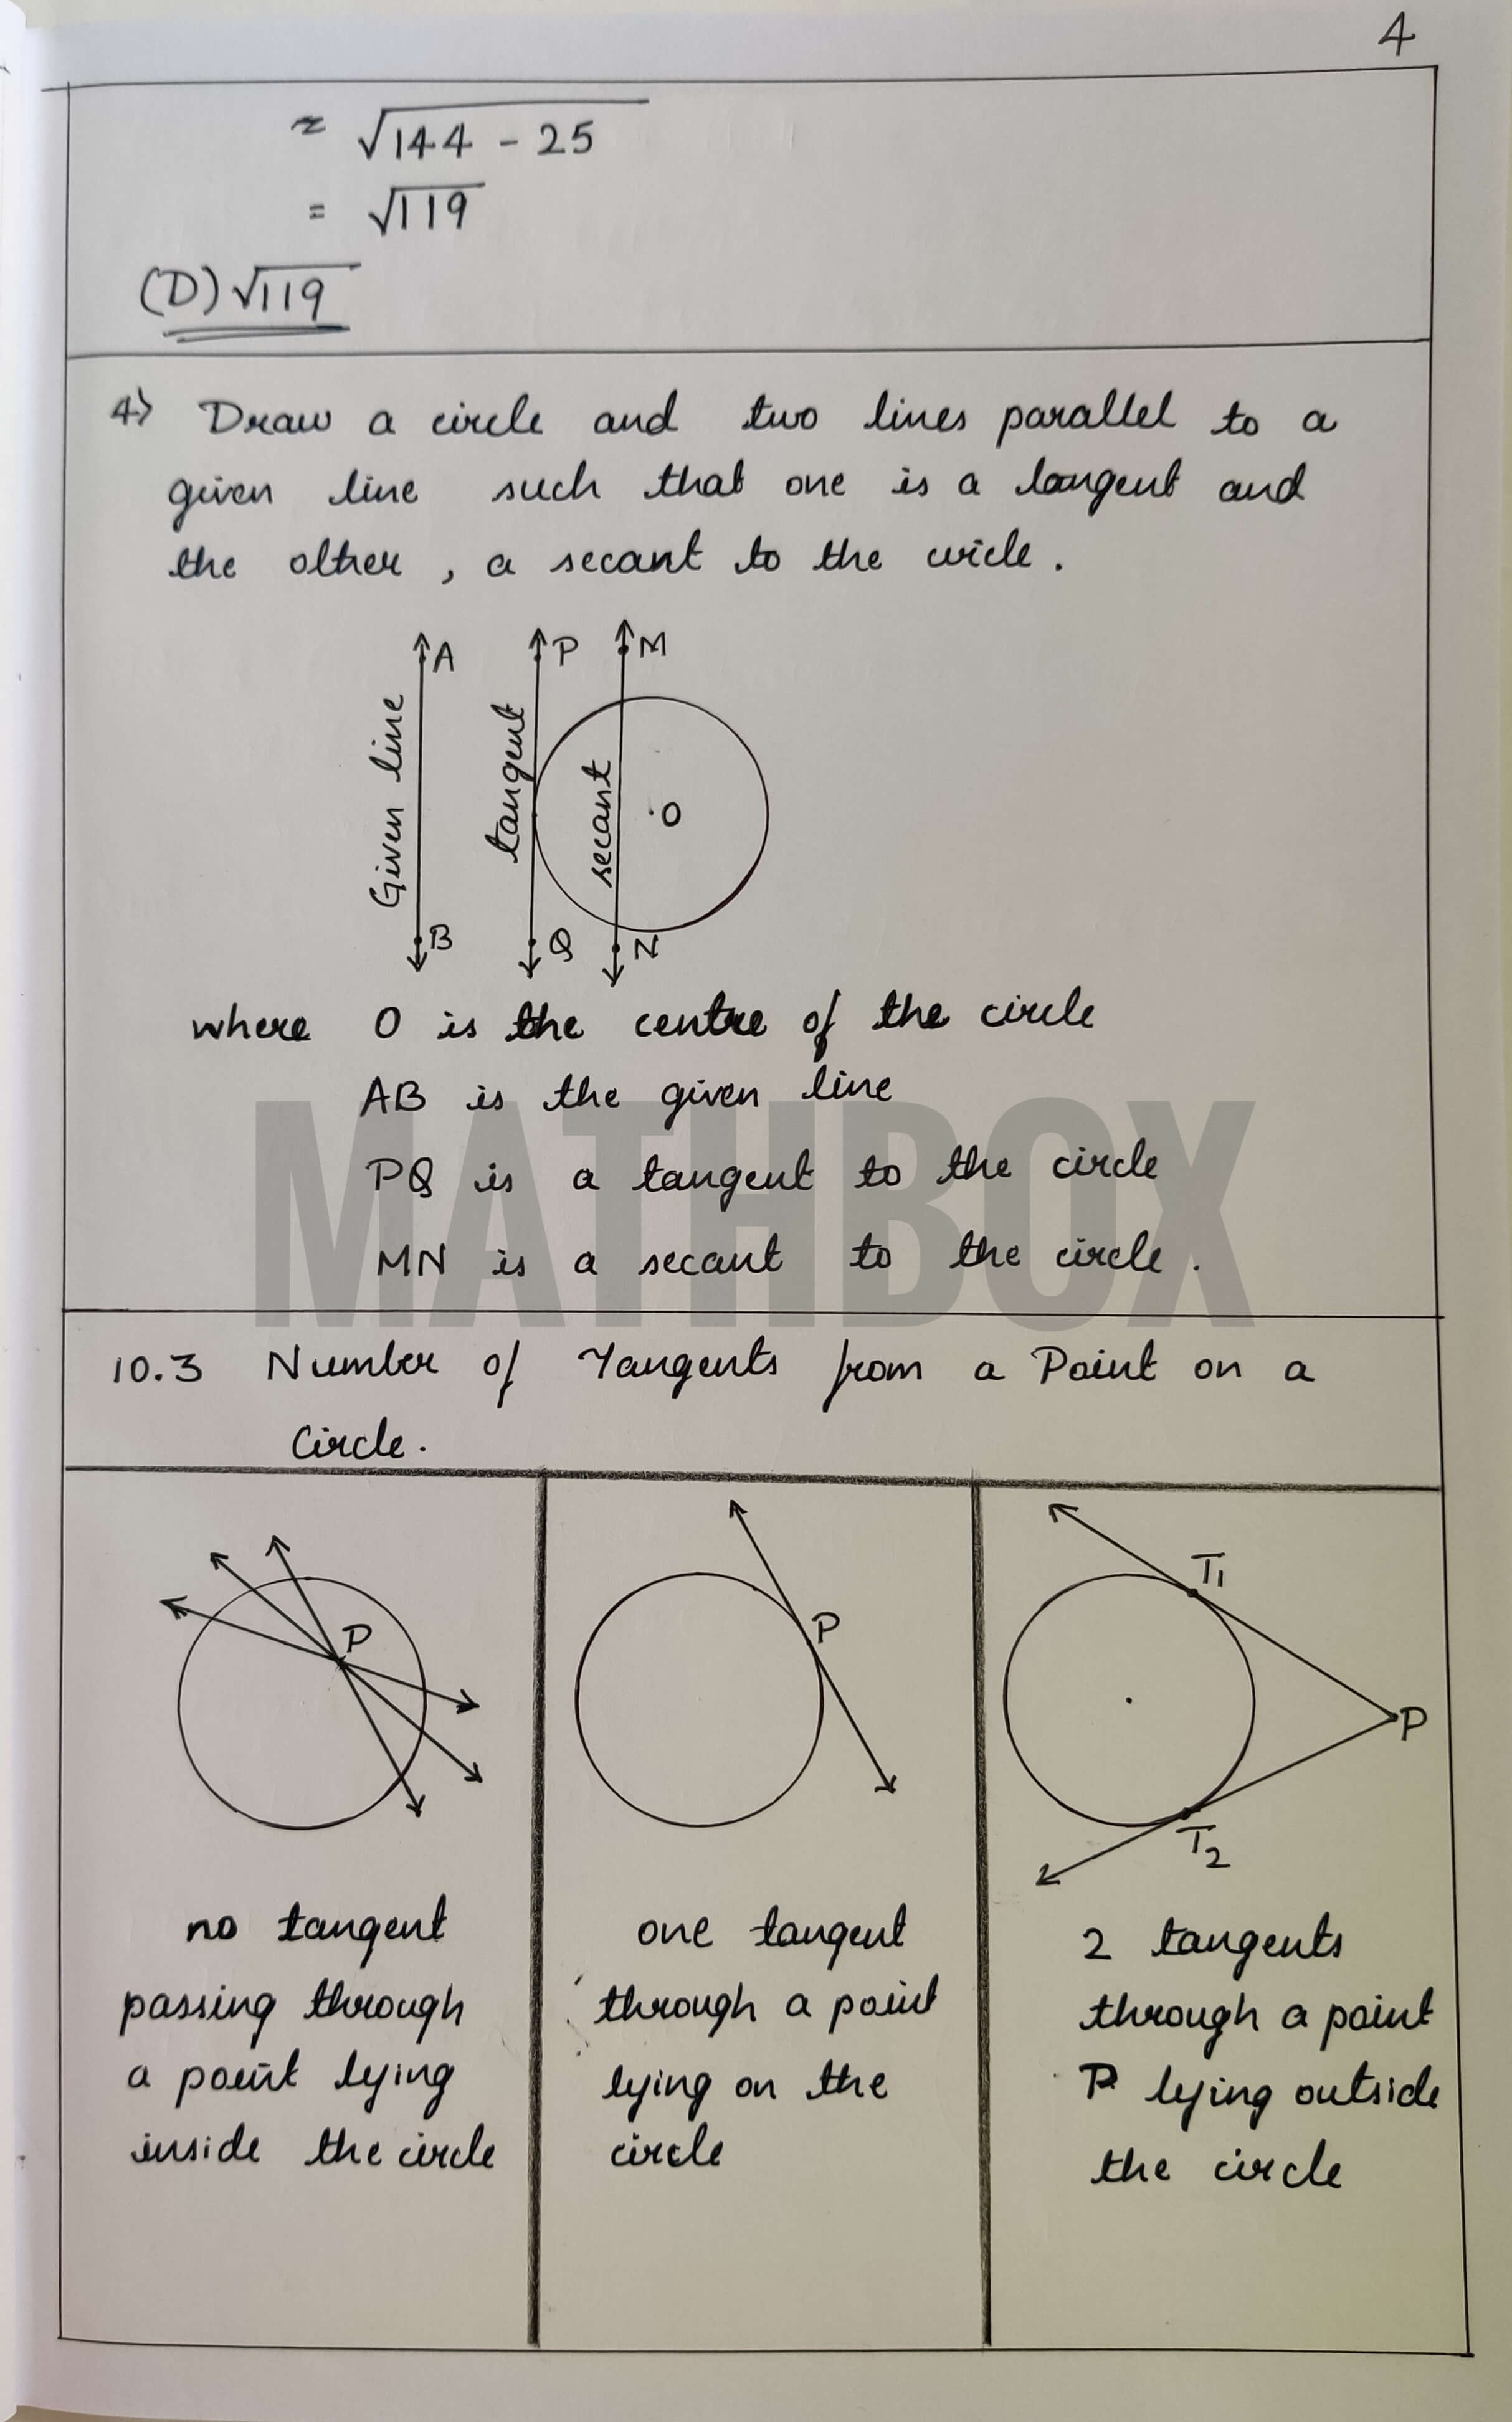 4
≈ √144 - 25
= √119
(D) √119
4> Draw a circle and two lines parallel to a
given line such that one is a tangent and
the other, a secant to the circle.
A
P
M
Given line
tangent
secant
O
B
Q
N
where O is the centre of the circle
AB is the given line
PQ is a tangent to the circle
MN is a secant to the circle.
MATHBOX
10.3 Number of Tangents from a Point on a
Circle.
P
no tangent
passing through
a point lying
inside the circle
P
one tangent
through a point
lying on the
circle
T1
P
T2
2 tangents
through a point
P lying outside
the circle